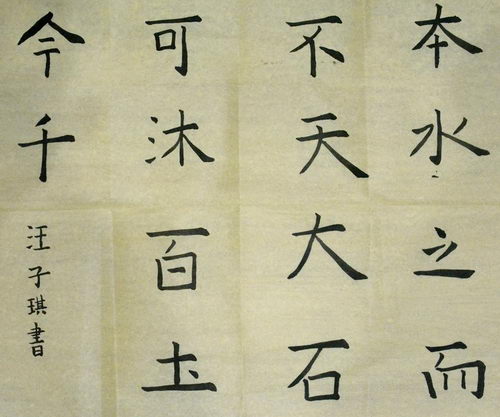 本水之而
不天大石
可沐百土
今千
汪子琪書